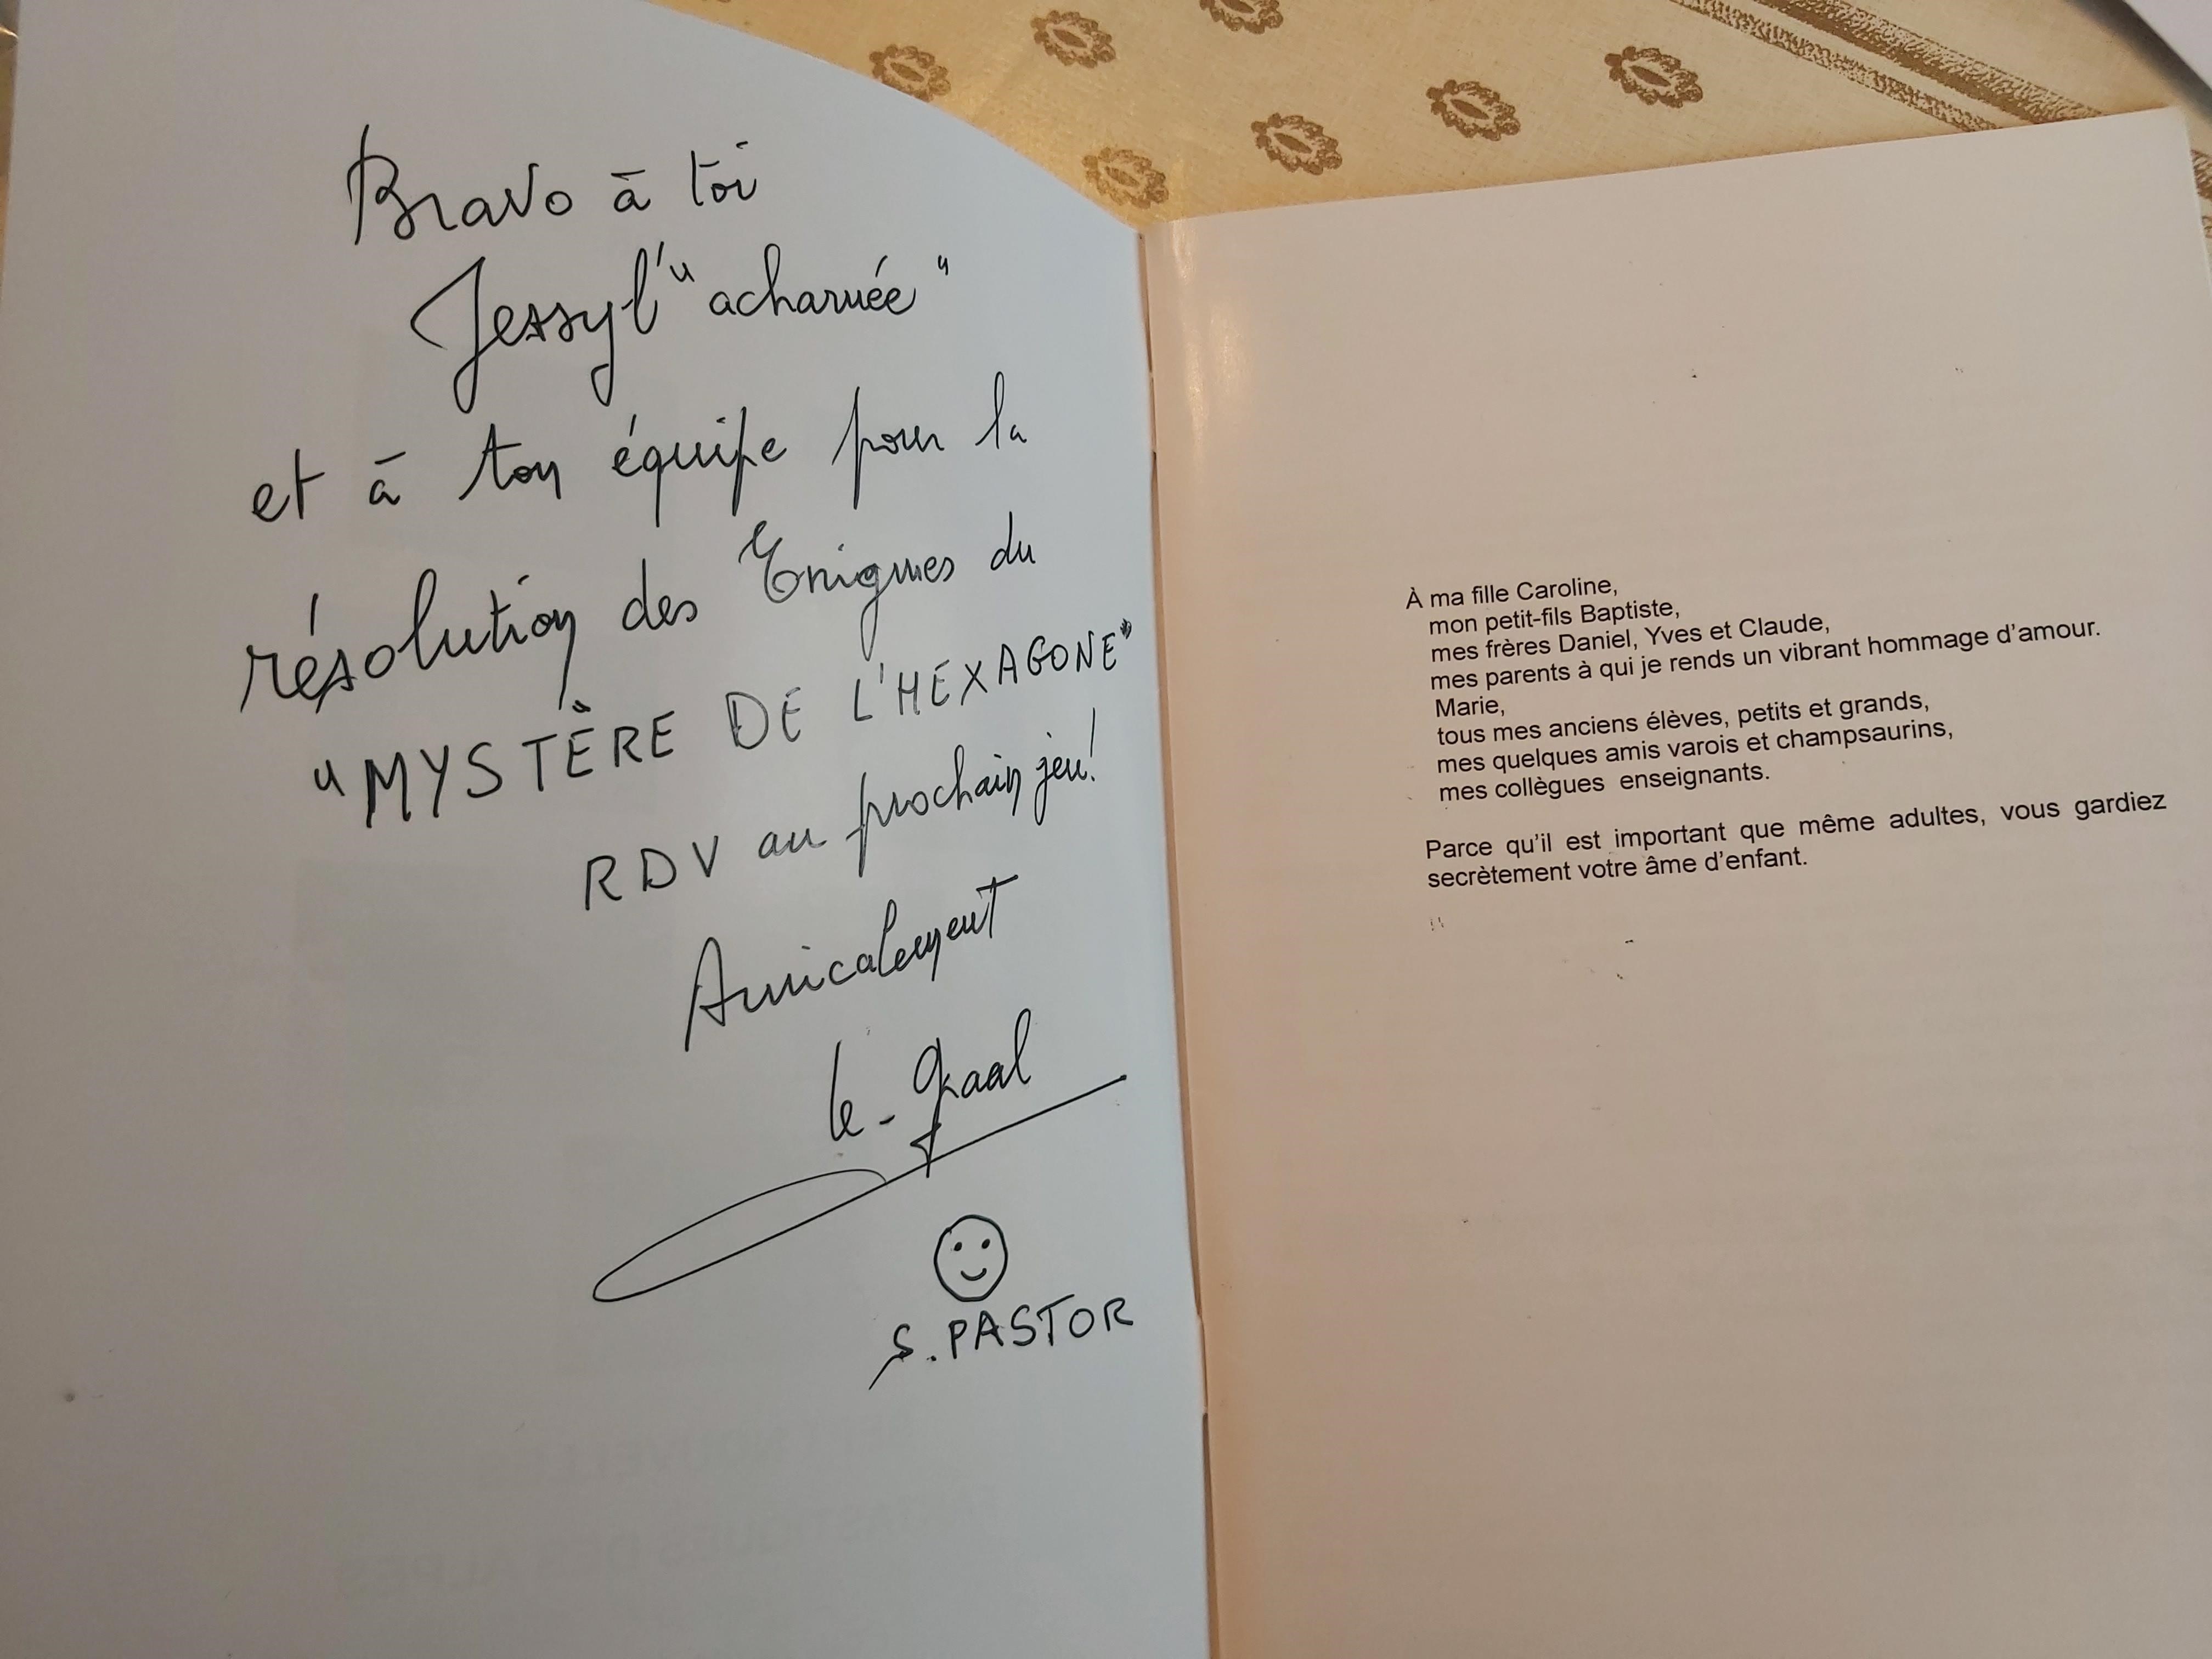 Bravo à toi
Jessy l' "acharnée"
et à ton équipe pour la
résolution des Enigmes du
"MYSTÈRE DE L'HEXAGONE"
RDV au prochain jeu!
Amicalement
le-graal
S. PASTOR
À ma fille Caroline,
mon petit-fils Baptiste,
mes frères Daniel, Yves et Claude,
mes parents à qui je rends un vibrant hommage d'amour.
Marie,
tous mes anciens élèves, petits et grands,
mes quelques amis varois et champsaurins,
mes collègues enseignants.
Parce qu'il est important que même adultes, vous gardiez
secrètement votre âme d'enfant.